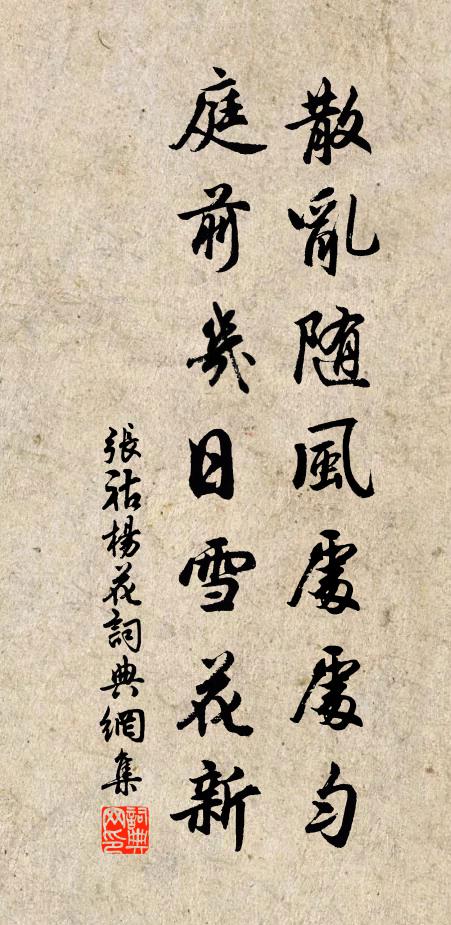 散亂随風處處勻
庭前幾日雪花新
張祜楊花詞典網集
詞典網印